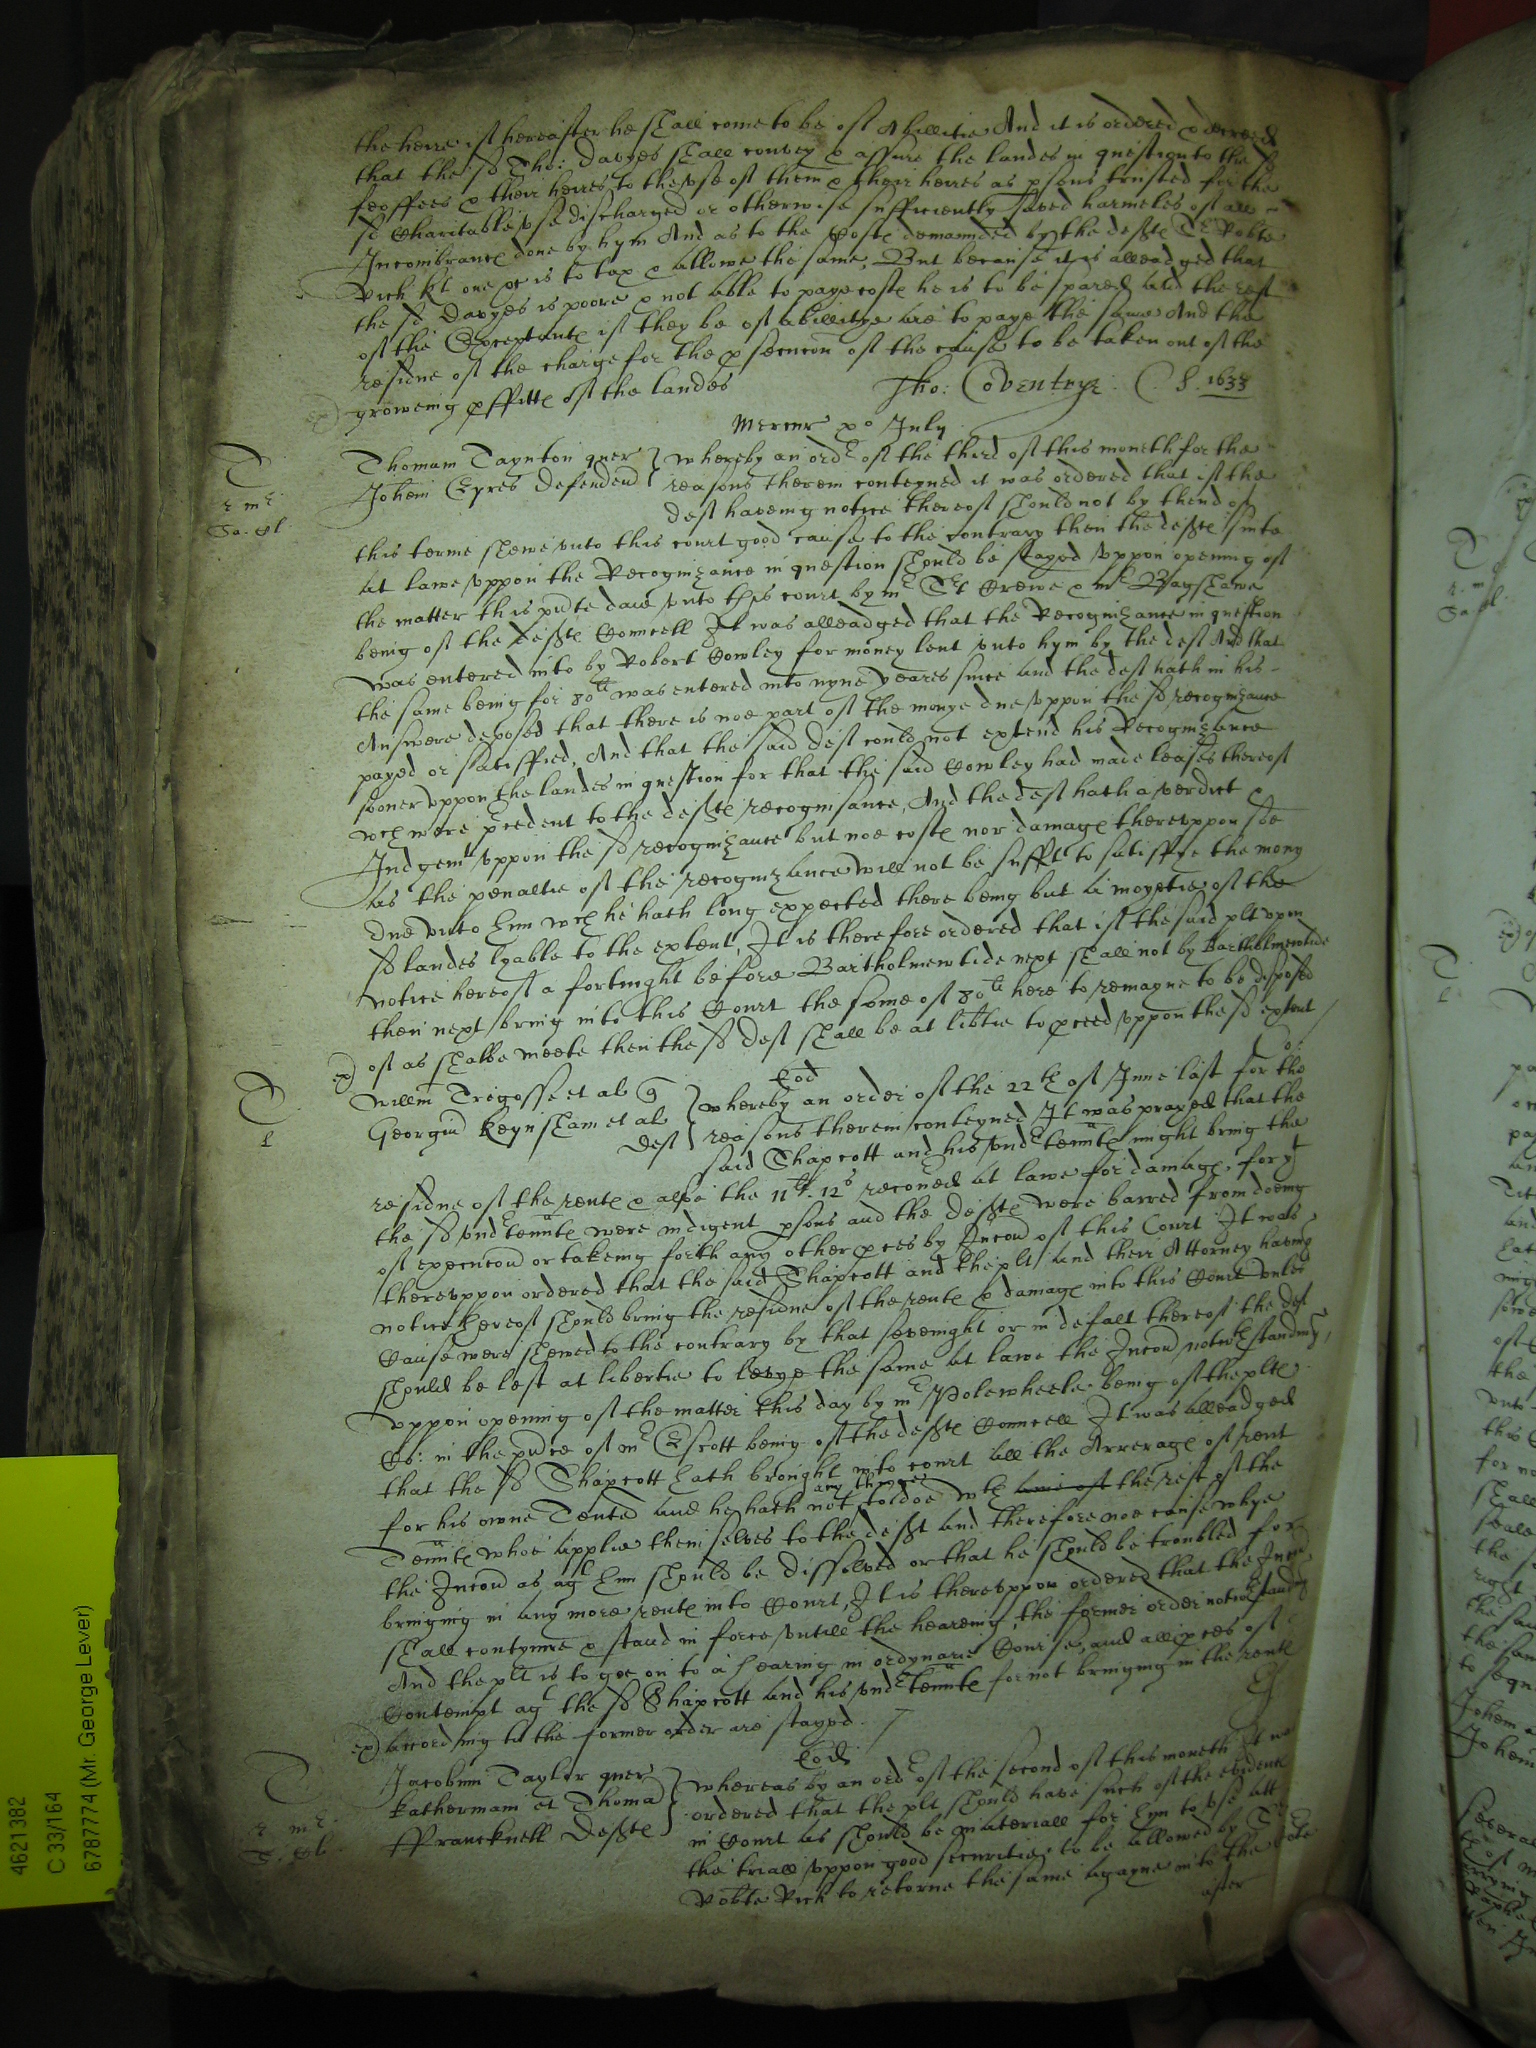 the heire if hereafter he shall come to be of Abillitie And it is ordered & decreed
that the sd Tho: Davyes shall convey & assure the landes in question to the sd
feoffees & their heires to the vse of them & their heires as psons trusted for the
sd Charitable vse discharged or otherwise sufficiently saved harmeles of all
Incombrance done by hym And as to the Coste demaunded by the defte Sr Robte
Rich kt one &c is to tax & allowe the same, But because it is alleadged that
the sd Davyes is poore & not able to paye coste he is to be spared and the rest
of the Exceptante if they be of abillitye are to paye the same And the
residue of the charge for the psecucon of the cause to be taken out of the
groweing pffitte of the landes
Tho: Coventrye. C. S. 1633
Mercur xo July
Thomam Taynton quer } whereby an ordr of the third of this moneth for the
Johem Eyres Defendend } reasons therein conteyned it was ordered that if the
deft haveing notice thereof should not by thend of
this terme shewe vnto this court good cause to the contrary then the defte suite
at lawe vppon the Recognizance in question should be stayed vppon opening of
the matter this pnte daie vnto this court by mr Srt Crewe & mr Bagshawe
being of the defte Councell It was alleadged that the Recognizance in question
was entered into by Robert Cowley for money lent vnto hym by the deft And that
the same being for 80li was entered into nyne yeares since and the deft hath in his
Answere deposed that there is noe part of the monye due vppon the sd recognizance
payed or satisffied, And that the said deft could not extend his Recognizance
sooner vppon the landes in question for that the said Cowley had made leases thereof
wch were pcedent to the defte recognisance, And the deft hath a verdict &
Judgemt vppon the sd recognizance but noe coste nor damage therevppon soe
as the penaltie of the recognizance will not be sufft to satisffye the mony
due vnto him wch he hath long expected there being but a moyetie of the
sd landes lyable to the extent, It is therefore ordered that if the said plt vpon
notice hereof a fortnight before Bartholmewtide next shall not by Bartholmewtide
then next bring into this Court the some of 80li here to remayne to be disposed
of as shalbe meete then the sd deft shall be at libtie to pceed vppon the sd extent
Eod
Willm Tregosse et al q } whereby an order of the 22th of June last for the
Georgiu Keynsham et al } reasons therein conteyned It was prayed that the
deft
said Shapcott and his vndrtennte might bring the
residue of the rente & alsoe the 11li. 12s recoued at lawe for damage, for yt
the sd vndrtennte were indigent psons and the defte were barred from doeing
of execucon or takeing forth any other pces by Iniucon of this Court It was
therevppon ordered that the said Shapcott and the plt and their Attorney having
notice hereof should bring the residue of the rente & damage into this Court vnles
Cause were shewed to the contrary by that sevenight or in defalt thereof the deft
should be left at libertie to levye the same at lawe the Iniucon notwthstanding,
vppon opening of the matter this day by mr Polewheele being of the plte
Co: in the pnce of mr Escott being of the defte Councell It was alleadged
that the sd Shapcott hath brought into court all the Arrerage of rent
for his owne Tented and he hath not any thinge to doe wth the rest of the
Tennte whoe applie themselves to the deft and therefore noe cause whye
the Iniucon as agt him should be dissolved or that he should be troubled for
bringing in any more rente into Court, It is therevppon ordered that the Iniucon
shall contynue & stand in force vntill the heareing, the former order notwthstanding
And the plt is to goe on to a hearing in ordynarie Course, and all pces of
Contempt agt the sd Shapcott and his vndrtennte for not bringing in the rente
according to the former order are stayed.
Eod
Jacobum Taylor quer } Whereas by an ordr of the second of this moneth It was
Katherinam et Thoma } ordered that the plt should have such of the evidence
ffrancknell Defte } in Court as should be materiall for hym to vse att
the triall vppon good securitie to be allowed by Sr
Robte Rich to retorne the same agayne into the Court
after
4621382
C 33/164
6787774 (Mr. George Lever)